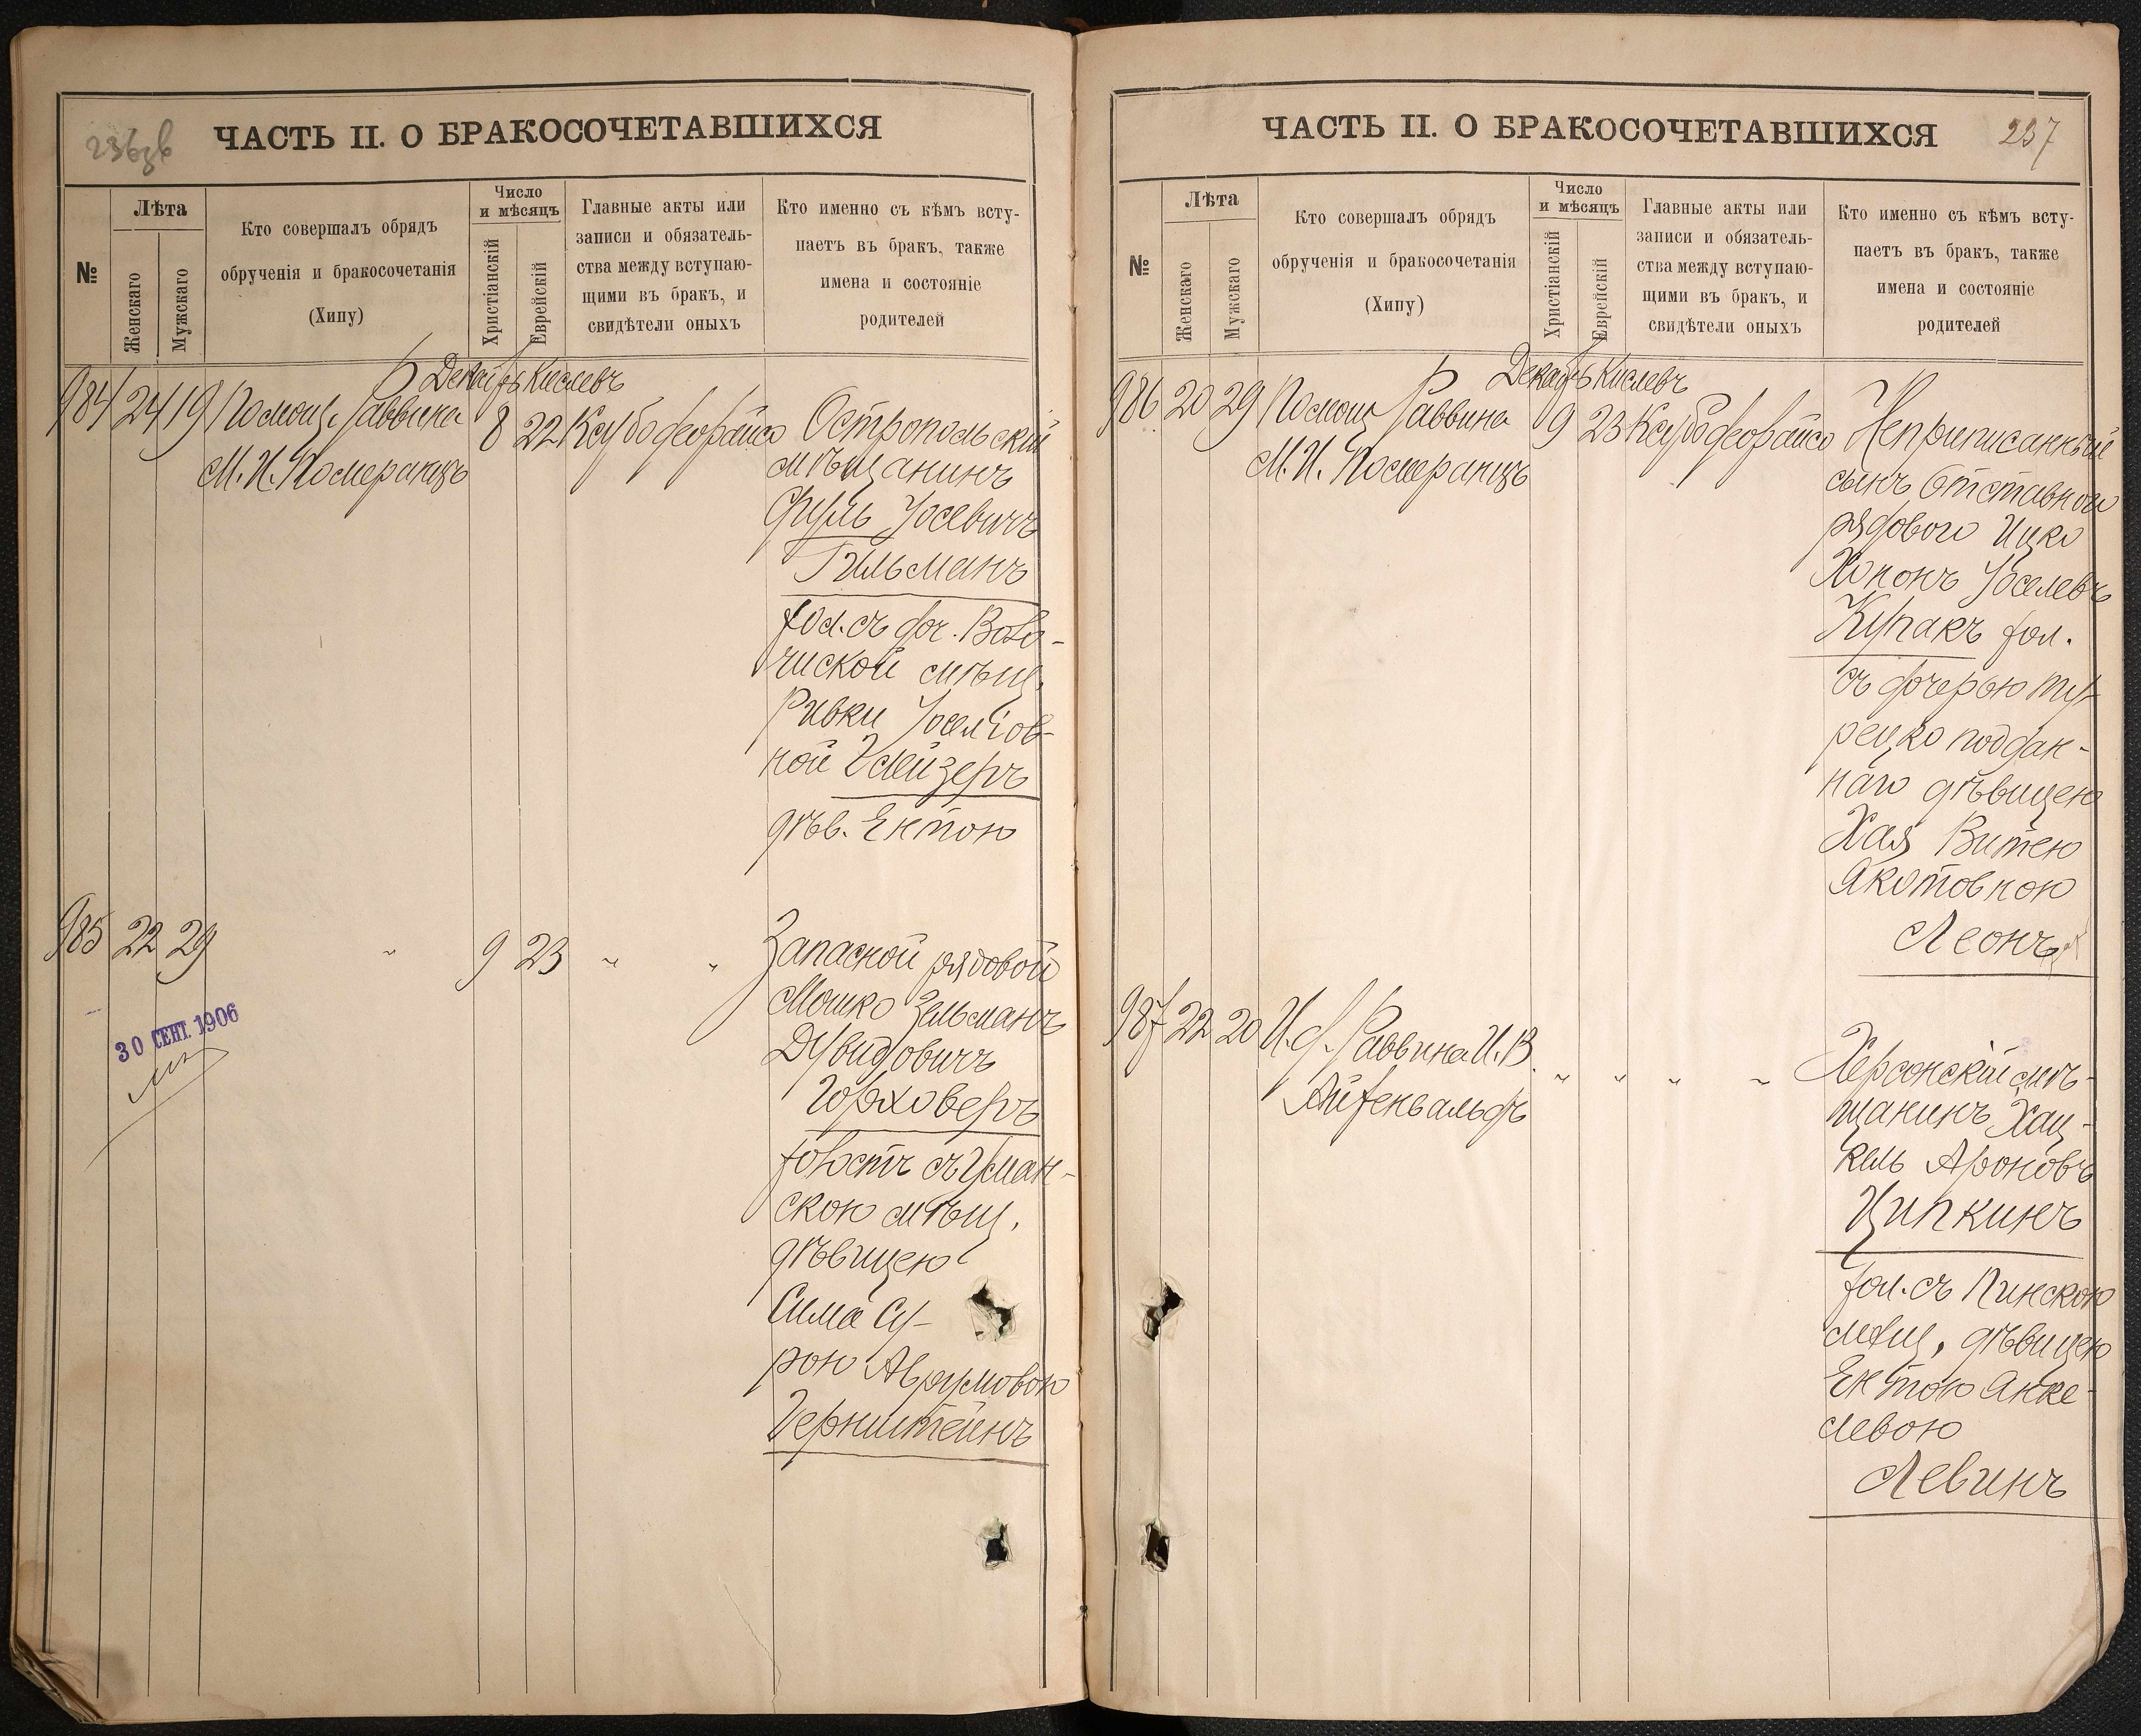 236 об
ЧАСТЬ II. О БРАКОСОЧЕТАВШИХСЯ
№
Лѣта
Женскаго
Мужскаго
Кто совершалъ обрядъ
обрученія и бракосочетанія
(Хипу)
Число
и мѣсяцъ
Христіанскій
Еврейскій
Главные акты или
записи и обязатель-
ства между вступаю-
щими въ бракъ, и
свидѣтели оныхъ
Кто именно съ кѣмъ всту-
паетъ въ бракъ, также
имена и состояніе
родителей
Декабрь Кислевъ
984 24 19 Помощ. Раввина 8 22
М. И. Померанцъ
Остропольскій
мѣщанинъ
Осевичъ
Гильманъ
хол. съ доч. Воло-
чиской мѣщ.
Ривки Іоселіов-
ной Глейзеръ
дѣв. Ентою
985 22 29 " 9 23 " "
Запасной рядовой
Мошко Зельманъ
Дувидовичъ
Горховеръ
холост съ Уман-
скою мѣщ.
дѣвицею
Сима Су-
рою Аврумовою
Бернштейнъ
30 СЕНТ. 1906
237
ЧАСТЬ II. О БРАКОСОЧЕТАВШИХСЯ
№
Лѣта
Женскаго
Мужскаго
Кто совершалъ обрядъ
обрученія и бракосочетанія
(Хипу)
Число
и мѣсяцъ
Христіанскій
Еврейскій
Главные акты или
записи и обязатель-
ства между вступаю-
щими въ бракъ, и
свидѣтели оныхъ
Кто именно съ кѣмъ всту-
паетъ въ бракъ, также
имена и состояніе
родителей
Декабрь Кислевъ
986 20 29 Помощ Раввина 9 23
М. И. Померанцъ
Неприписанный
сынъ отставного
рядового Ицко
Хононъ Іоселевъ
Купакъ хол.
съ дочерью ту-
рецко поддан-
наго дѣвицею
Хая Витею
Якотовною
Леонъ
987 22 20 И. д. Раввина И. В. " " " "
Айхенвальдъ
Херсонскій мѣ-
щанинъ Хац-
кель Ароновъ
Ципкинъ
хол. съ Пинскою
мѣщ. дѣвицею
Ентою Янке-
левою
Левинъ